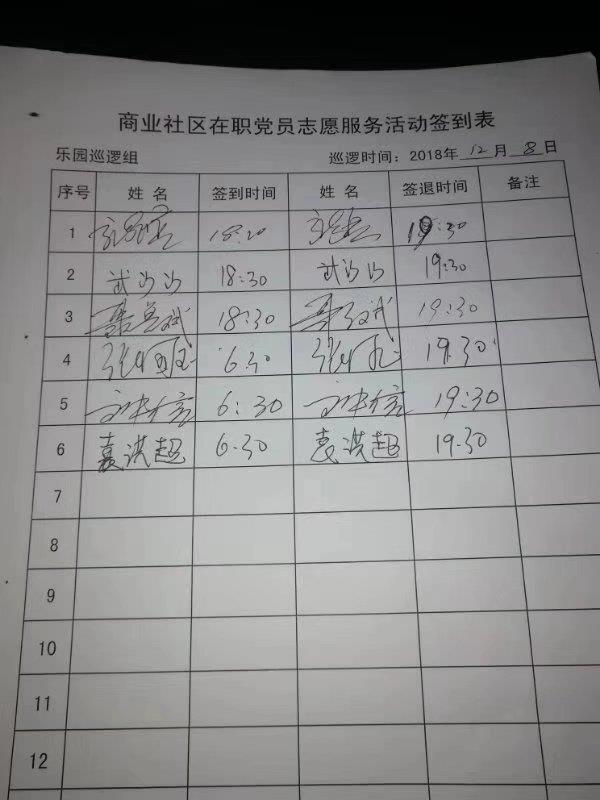 商业社区在职党员志愿服务活动签到表
乐园巡逻组 巡逻时间：2018年12月8日
序号 姓名 签到时间 姓名 签退时间 备注
1 18:20 19:30
2 武山山 18:30 武山山 19:30
3 18:30 19:30
4 6:30 19:30
5 6:30 19:30
6 袁洪超 6:30 袁洪超 19:30
7
8
9
10
11
12